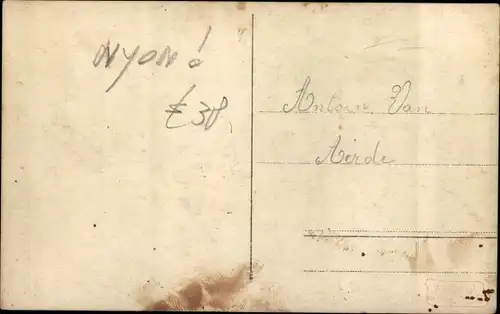 NYON!
£ 38,
Antoin Van
Aerde